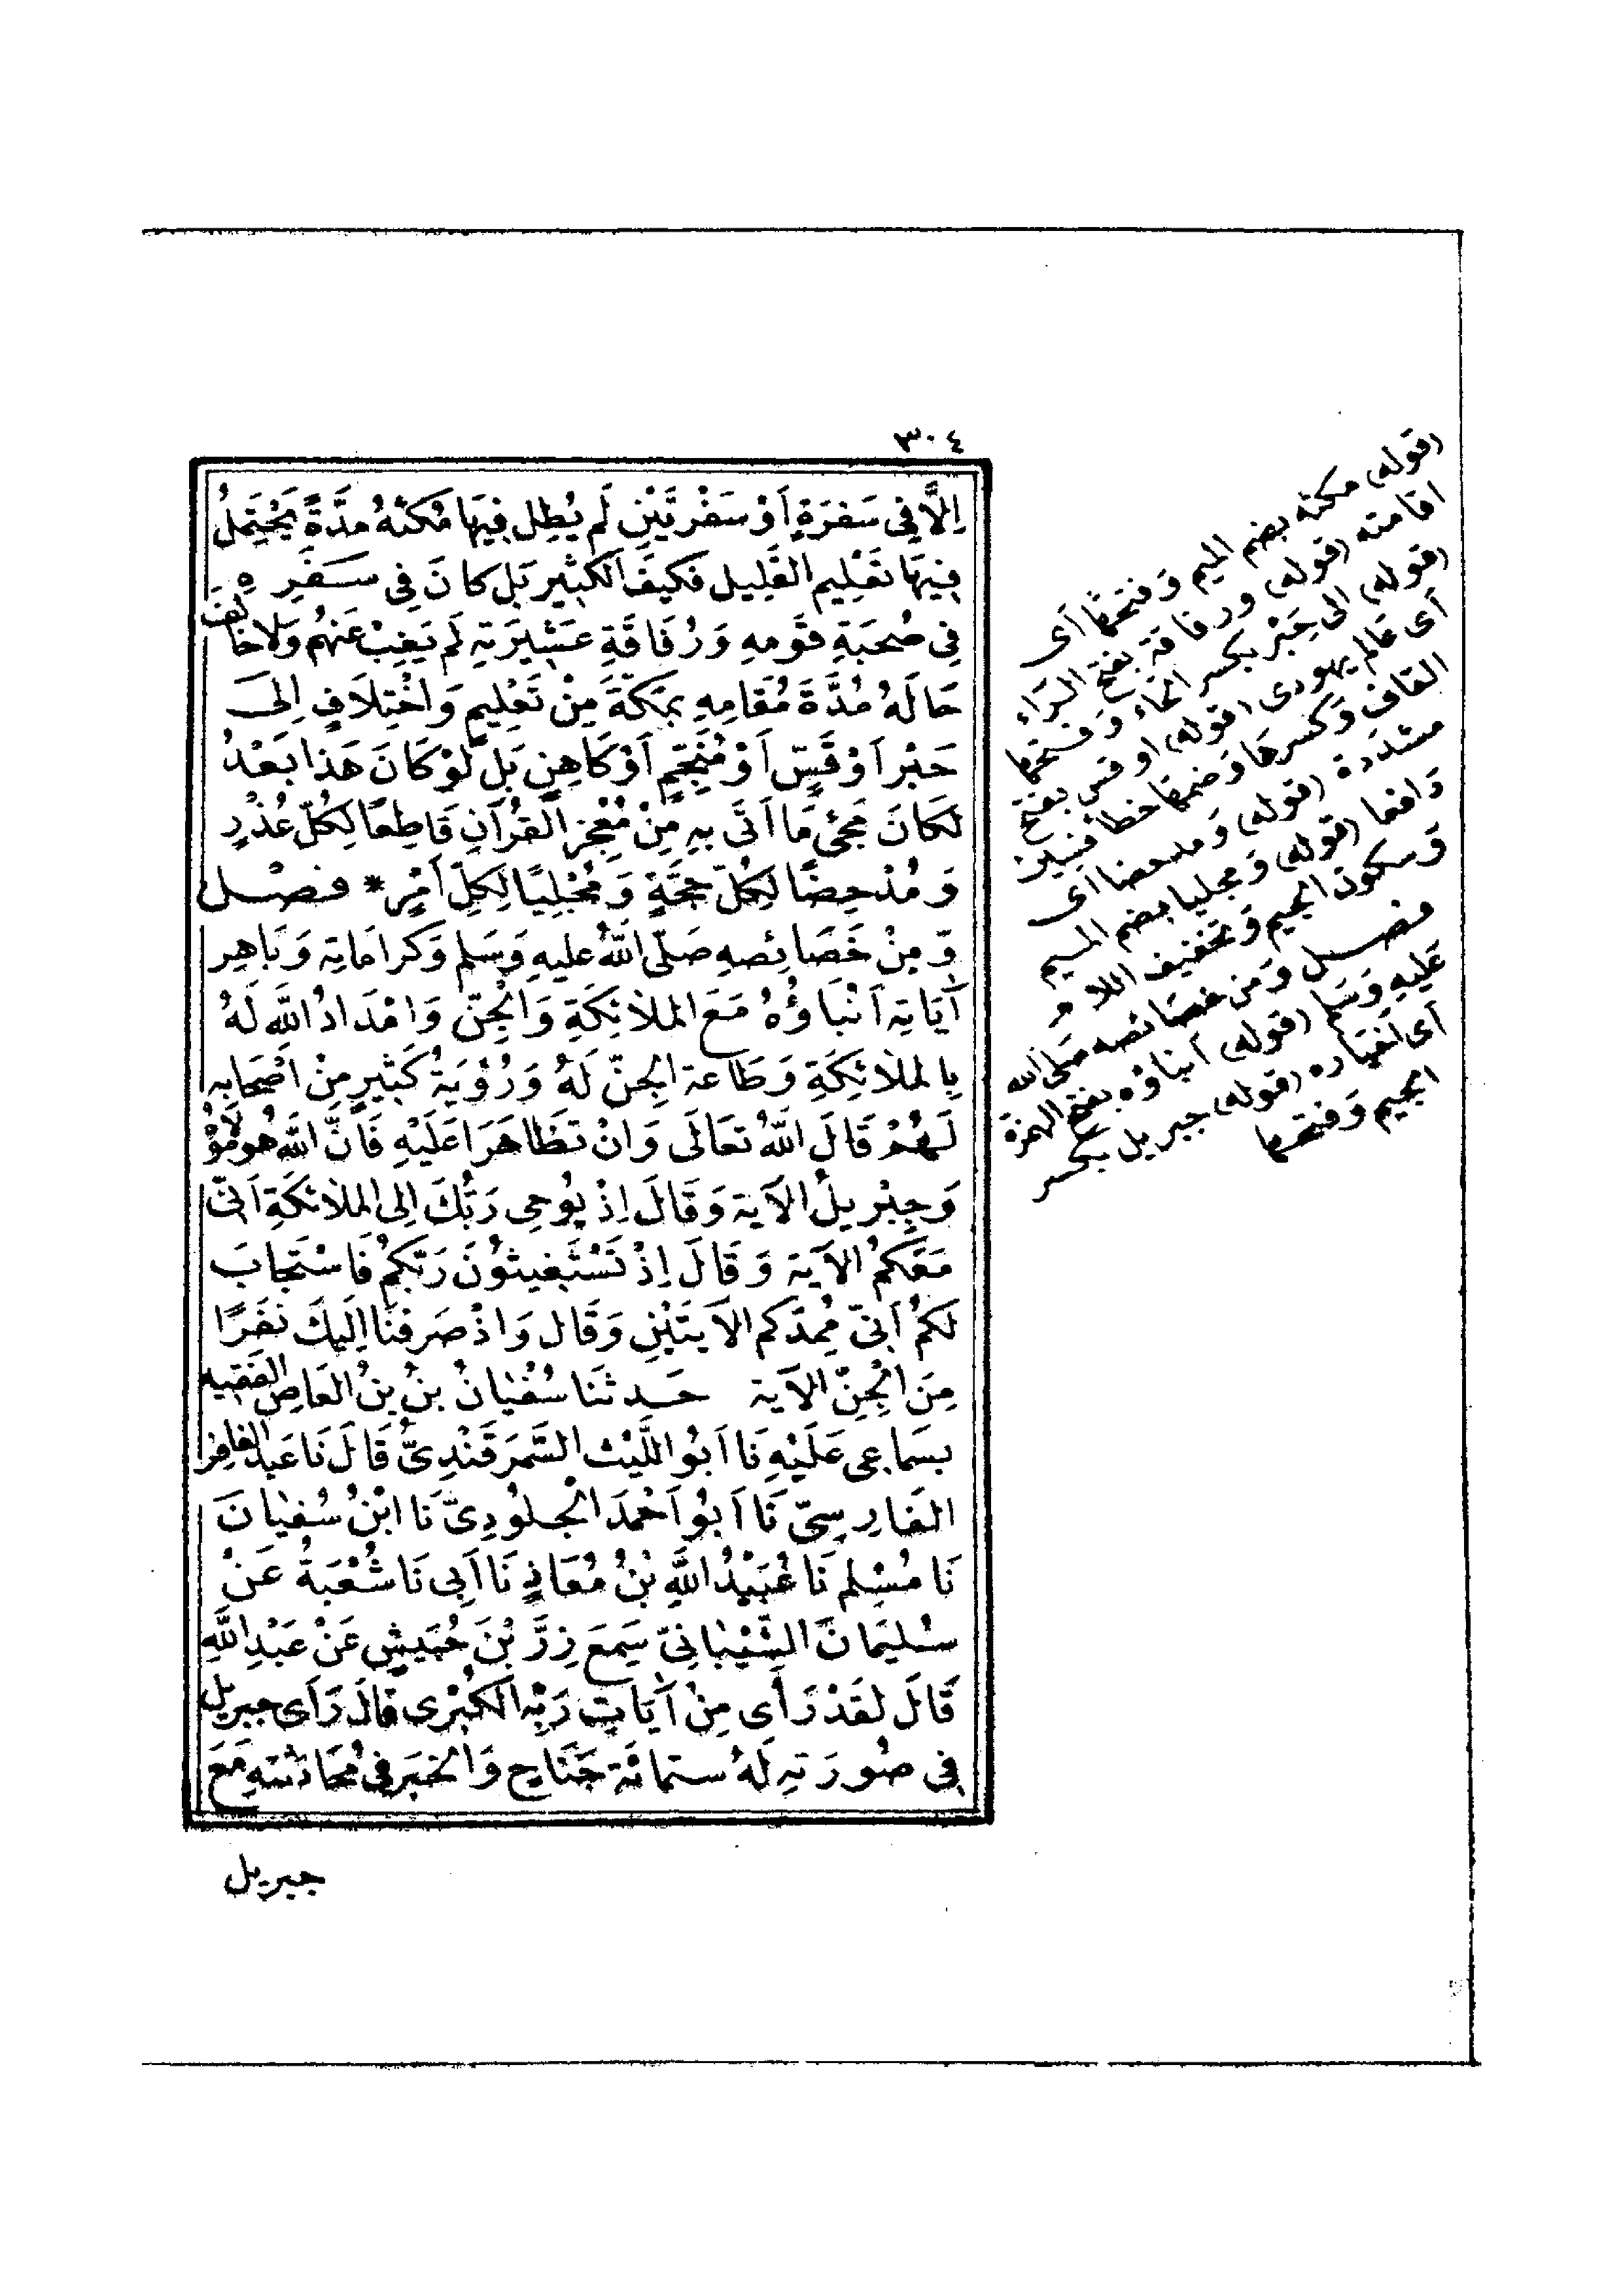 ٣٠٤
اِلَّا فِى سَفْرَةٍ اَوْ سَفْرَتَيْنِ لَم يُطِل فِيهَا مُكْثَهُ مدَّةً يَحْتَمِلُ
فِيهَا تَعْلِيم القَلِيل فَكيفَ الكثِير بَل كانَ فى سَفَرِه
فى صُحبَةِ قَومِهِ وَرُفَاقَةِ عَشِيرَتِهِ لَم يَغِبْ عَنهُم وَلَا خالَفَ
حَالَهُ مُدَّةَ مُقَامِهِ بمَكّةَ مِنْ تَعْلِيمٍ وَاخْتِلَافٍ اِلَى
حَبْرٍ اَوْ قَسٍّ اَوْ مُنَجِّمٍ اَوْ كَاهِنٍ بَل لَوْ كَانَ هَذا بَعْدُ
لَكَانَ مَجِئُ مَا اَتَى بِهِ مِنْ مُعْجِزِ القُرآنِ قَاطِعًا لِكُلِّ عُذْرٍ
وَمُدْحِضًا لِكُلّ حُجَّةٍ وَمُجْلِيًا لِكِلّ اَمْرٍ * فصْـل
وَمِنْ خَصَائِصِهِ صَلّى اللهُ عليهِ وَسَلم وَكرامَاتِه وَبَاهِرِ
آيَاتِهِ اَنْبَاؤُهُ مَعَ الملائِكَةِ وَالجِنّ وَامْدَادُ اللَّهِ لَهُ
بِالملائِكَةِ وَطَاعَة الجِنّ لَهُ وَرُؤيَةُ كَثِيرٍ مِنْ اَصْحَابِهِ
لَهُمْ قَالَ اللَّهُ تعَالَى وَانْ تَظَاهَرَا عَلَيْهِ فَاِنَّ اللَّه هُوَ مَوْلَاهُ
وَجِبْرِيلُ الآية وَقَالَ اِذْ يُوحِى رَبُّكَ اِلى الملائكَةِ اَنّى
مَعَكُمْ الآية وَقَالَ اِذْ تَسْتَغِيثُونَ رَبّكُم فَاسْتَجَابَ
لَكُمْ اَنّى مُمِدّكم الآيتَيْنِ وَقَال وَاذْ صَرَفْنَا اِلَيكَ نَفَرًا
مِنَ الْجِنّ الآية حَـدثنَا سُفْيَانُ بنُ العَاصِى الفَقِيه
بسَمَاعِى عَلَيْهِ نَا اَبُو اللَّيْث السَّمَرقَنْدِىُّ قَالَ نَا عَبد الغافِر
الفَارِسِىّ نَا اَبُو اَحْمَدَ الْجلُودِىّ نَا ابْنُ سُفيَانَ
نَا مُسْلِم نَا عُبَيْدُ اللَّهِ بْنُ مُعَاذٍ نَا اَبِى نَا شُعْبَةُ عَنْ
سُليمَانَ الشَّيْبَانىّ سَمِعَ زِرَّ بْنَ حُبَيشٍ عَنْ عَبْدِ اللَّهِ
قَالَ لقَدْ رَأَى مِنْ آيَاتِ رَبّهِ الكُبْرَى قالَ رَأَى جبريل
فى صُورَتِهِ لَهُ ستمائة جَنَاحٍ وَالخبَر فى مُحَادَثتِهِ مَعَ
جبريل
(قوله) مكثه بضم الميم وفتحها أى
اقامته (قوله) ورفاقة بفتح الراء
(قوله) الى حَبْر بكسر الحاء وفتحها
أى عالم يهودى (قوله) او قس بفتح
القاف وكسرها وضمها خطأ فسين
مشددة (قوله) ومدحضا أى
دافعا (قوله) ومجليا بضم الميم
وسكون الجيم وتخفيف اللام
فصـل ومن خصائصه صلى الله
عليه وسلم (قوله) انباؤه بفتح الهمزة
أى اخباره (قوله) جبريل بكسر
الجيم وفتحها